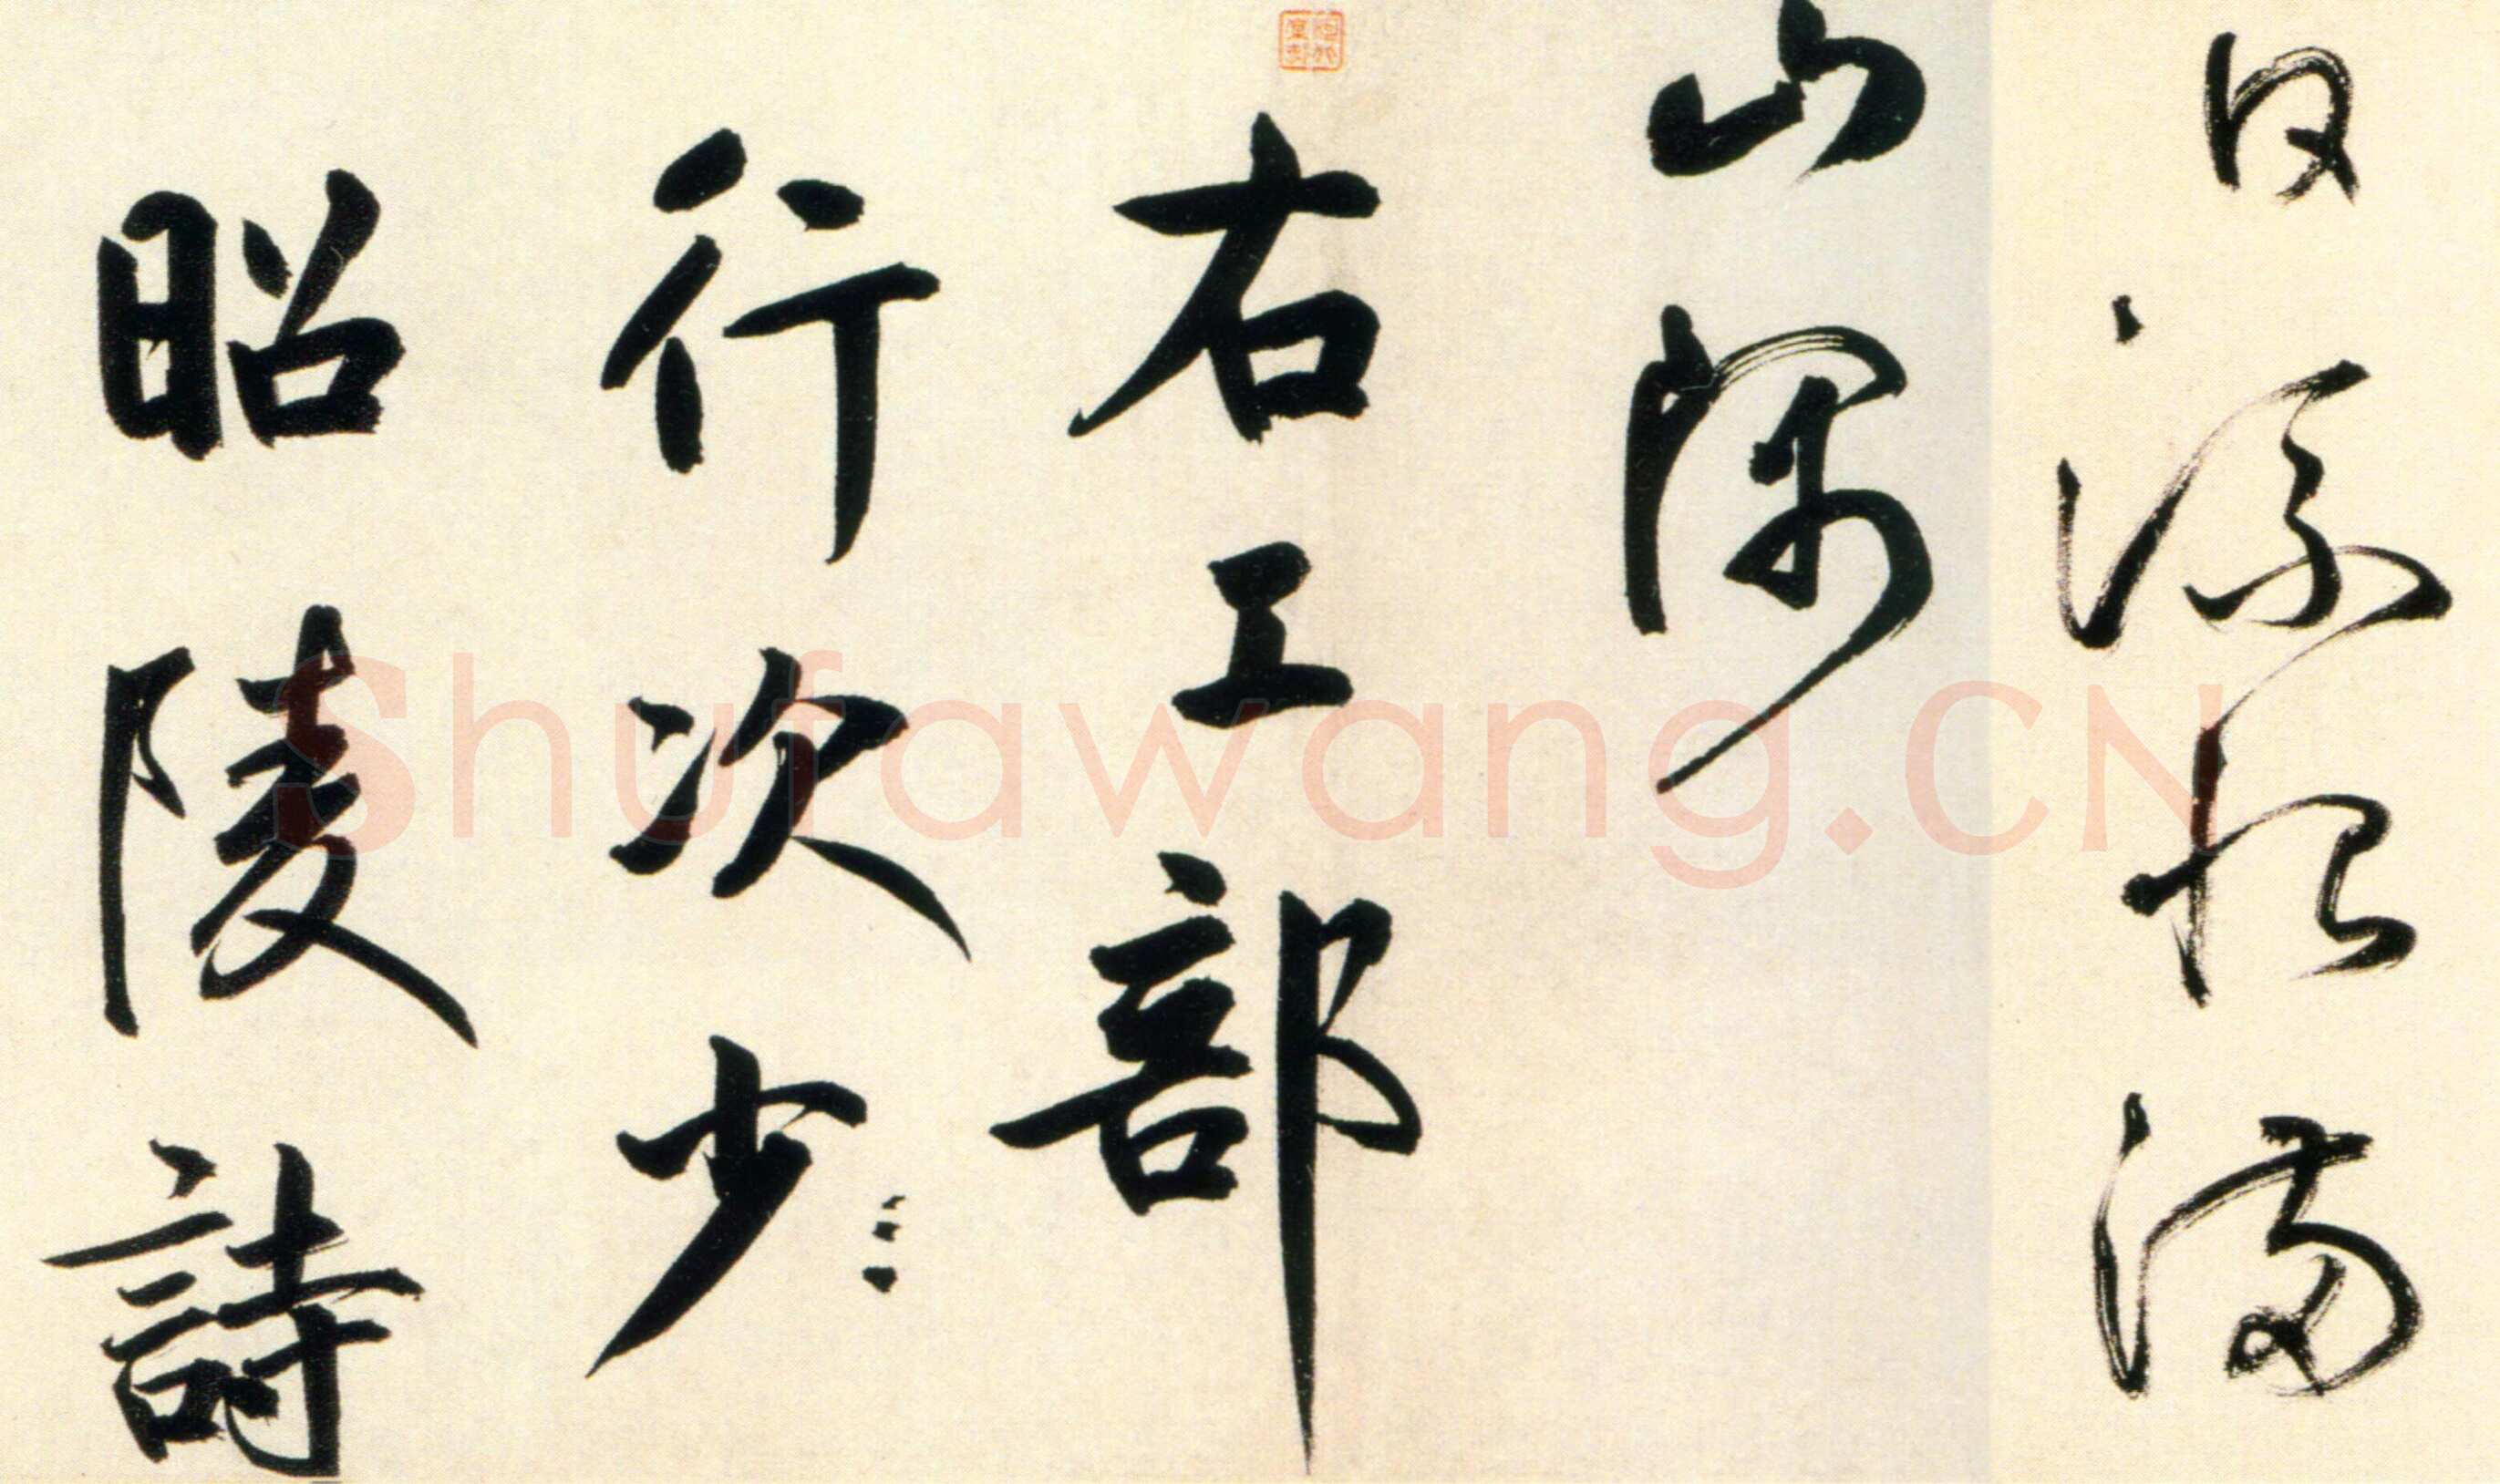 日流恨滿
山隅
右工部
行次少
昭陵詩
Shufawang.CN